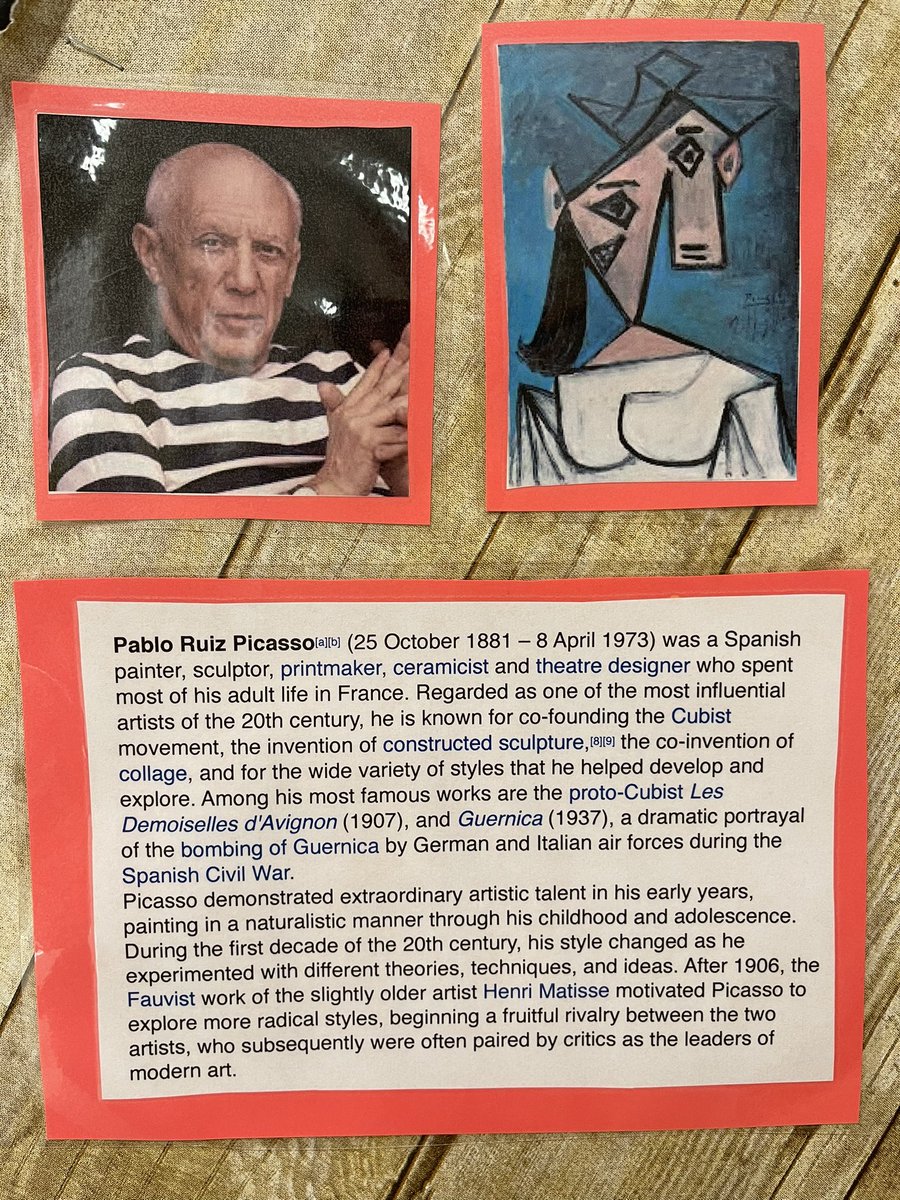 Picasso
Pablo Ruiz Picasso[a][b] (25 October 1881 – 8 April 1973) was a Spanish
painter, sculptor, printmaker, ceramicist and theatre designer who spent
most of his adult life in France. Regarded as one of the most influential
artists of the 20th century, he is known for co-founding the Cubist
movement, the invention of constructed sculpture,[8][9] the co-invention of
collage, and for the wide variety of styles that he helped develop and
explore. Among his most famous works are the proto-Cubist Les
Demoiselles d'Avignon (1907), and Guernica (1937), a dramatic portrayal
of the bombing of Guernica by German and Italian air forces during the
Spanish Civil War.
Picasso demonstrated extraordinary artistic talent in his early years,
painting in a naturalistic manner through his childhood and adolescence.
During the first decade of the 20th century, his style changed as he
experimented with different theories, techniques, and ideas. After 1906, the
Fauvist work of the slightly older artist Henri Matisse motivated Picasso to
explore more radical styles, beginning a fruitful rivalry between the two
artists, who subsequently were often paired by critics as the leaders of
modern art.